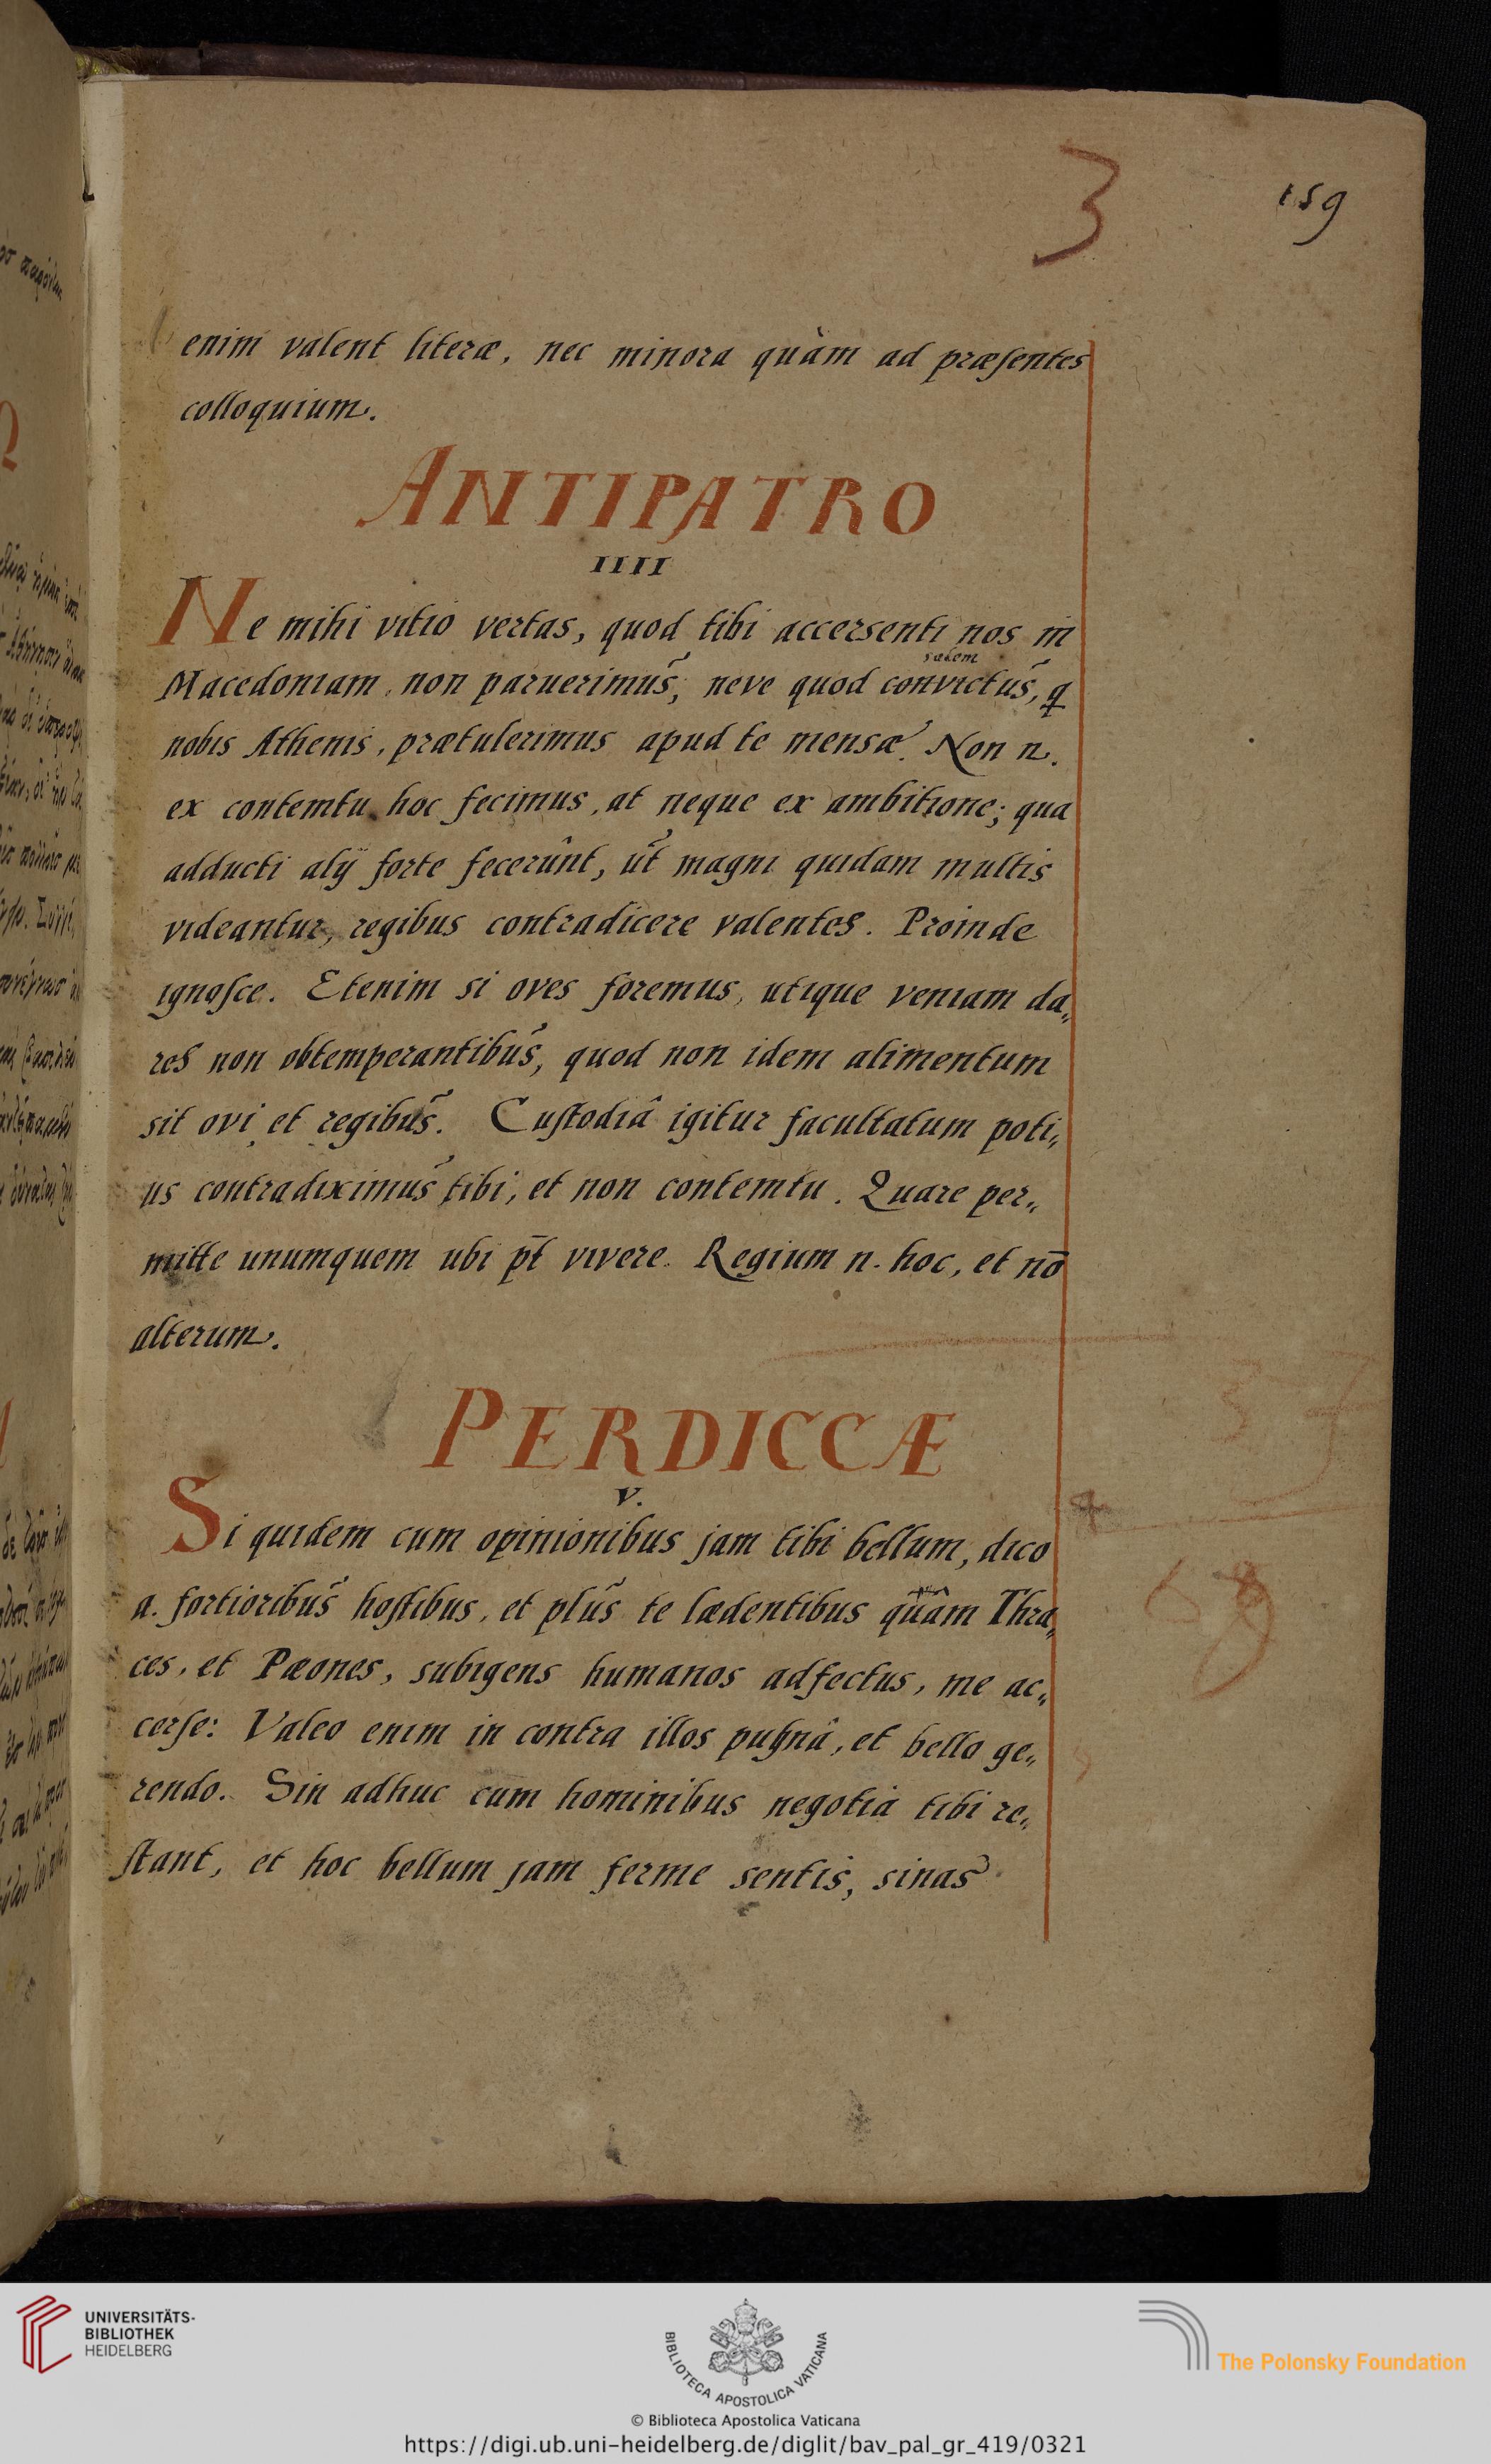 3
159
enim valent literæ, nec minora quàm ad præsentes
colloquium.
ANTIPATRO
IIII
Ne mihi vitio vertas, quod tibi accersenti nos in
Macedoniam, non paruerimus, neve quod convictus, q
nobis Athenis, prætulerimus apud te mensæ. Non n.
ex contemtu hoc fecimus, at neque ex ambitione; qua
adducti alij forte fecerûnt, ût magni quidam multis
videantur, regibus contradicere valentes. Proinde
ignosce. Etenim si oves foremus, utique veniam da„
res non obtemperantibus, quod non idem alimentum
sit ovi et regibus. Custodiâ igitur facultatum poti„
us contradiximus tibi, et non contemtu. Quare per„
mitte unumquem ubi p̄t vivere. Regium n. hoc, et nō
alterum.
PERDICCÆ
V.
Si quidem cum opinionibus jam tibi bellum, dico
a. fortioribus hostibus, et plus te lædentibus quàm Thra„
ces, et Pæones, subigens humanos adfectus, me ac„
cerse: Valeo enim in contra illos pugnâ, et bello ge„
rendo. Sin adhuc cum hominibus negotia tibi re„
stant, et hoc bellum jam ferme sentis, sinas
UNIVERSITÄTS-
BIBLIOTHEK
HEIDELBERG
BIBLIOTECA APOSTOLICA VATICANA
The Polonsky Foundation
© Biblioteca Apostolica Vaticana
https://digi.ub.uni-heidelberg.de/diglit/bav_pal_gr_419/0321